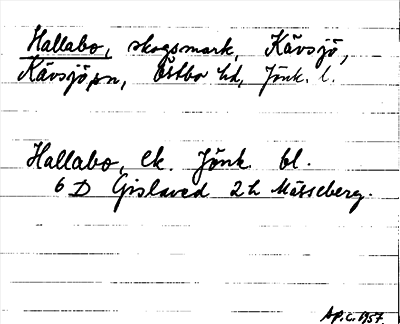 Hallabo, skogsmark, Kävsjö,
Kävsjö sn, Östbo hd, Jönk. l.
Hallabo, Ek. Jönk. bl.
6 D Gislaved 2 h Mässeberg.
Ap. C. 1957.